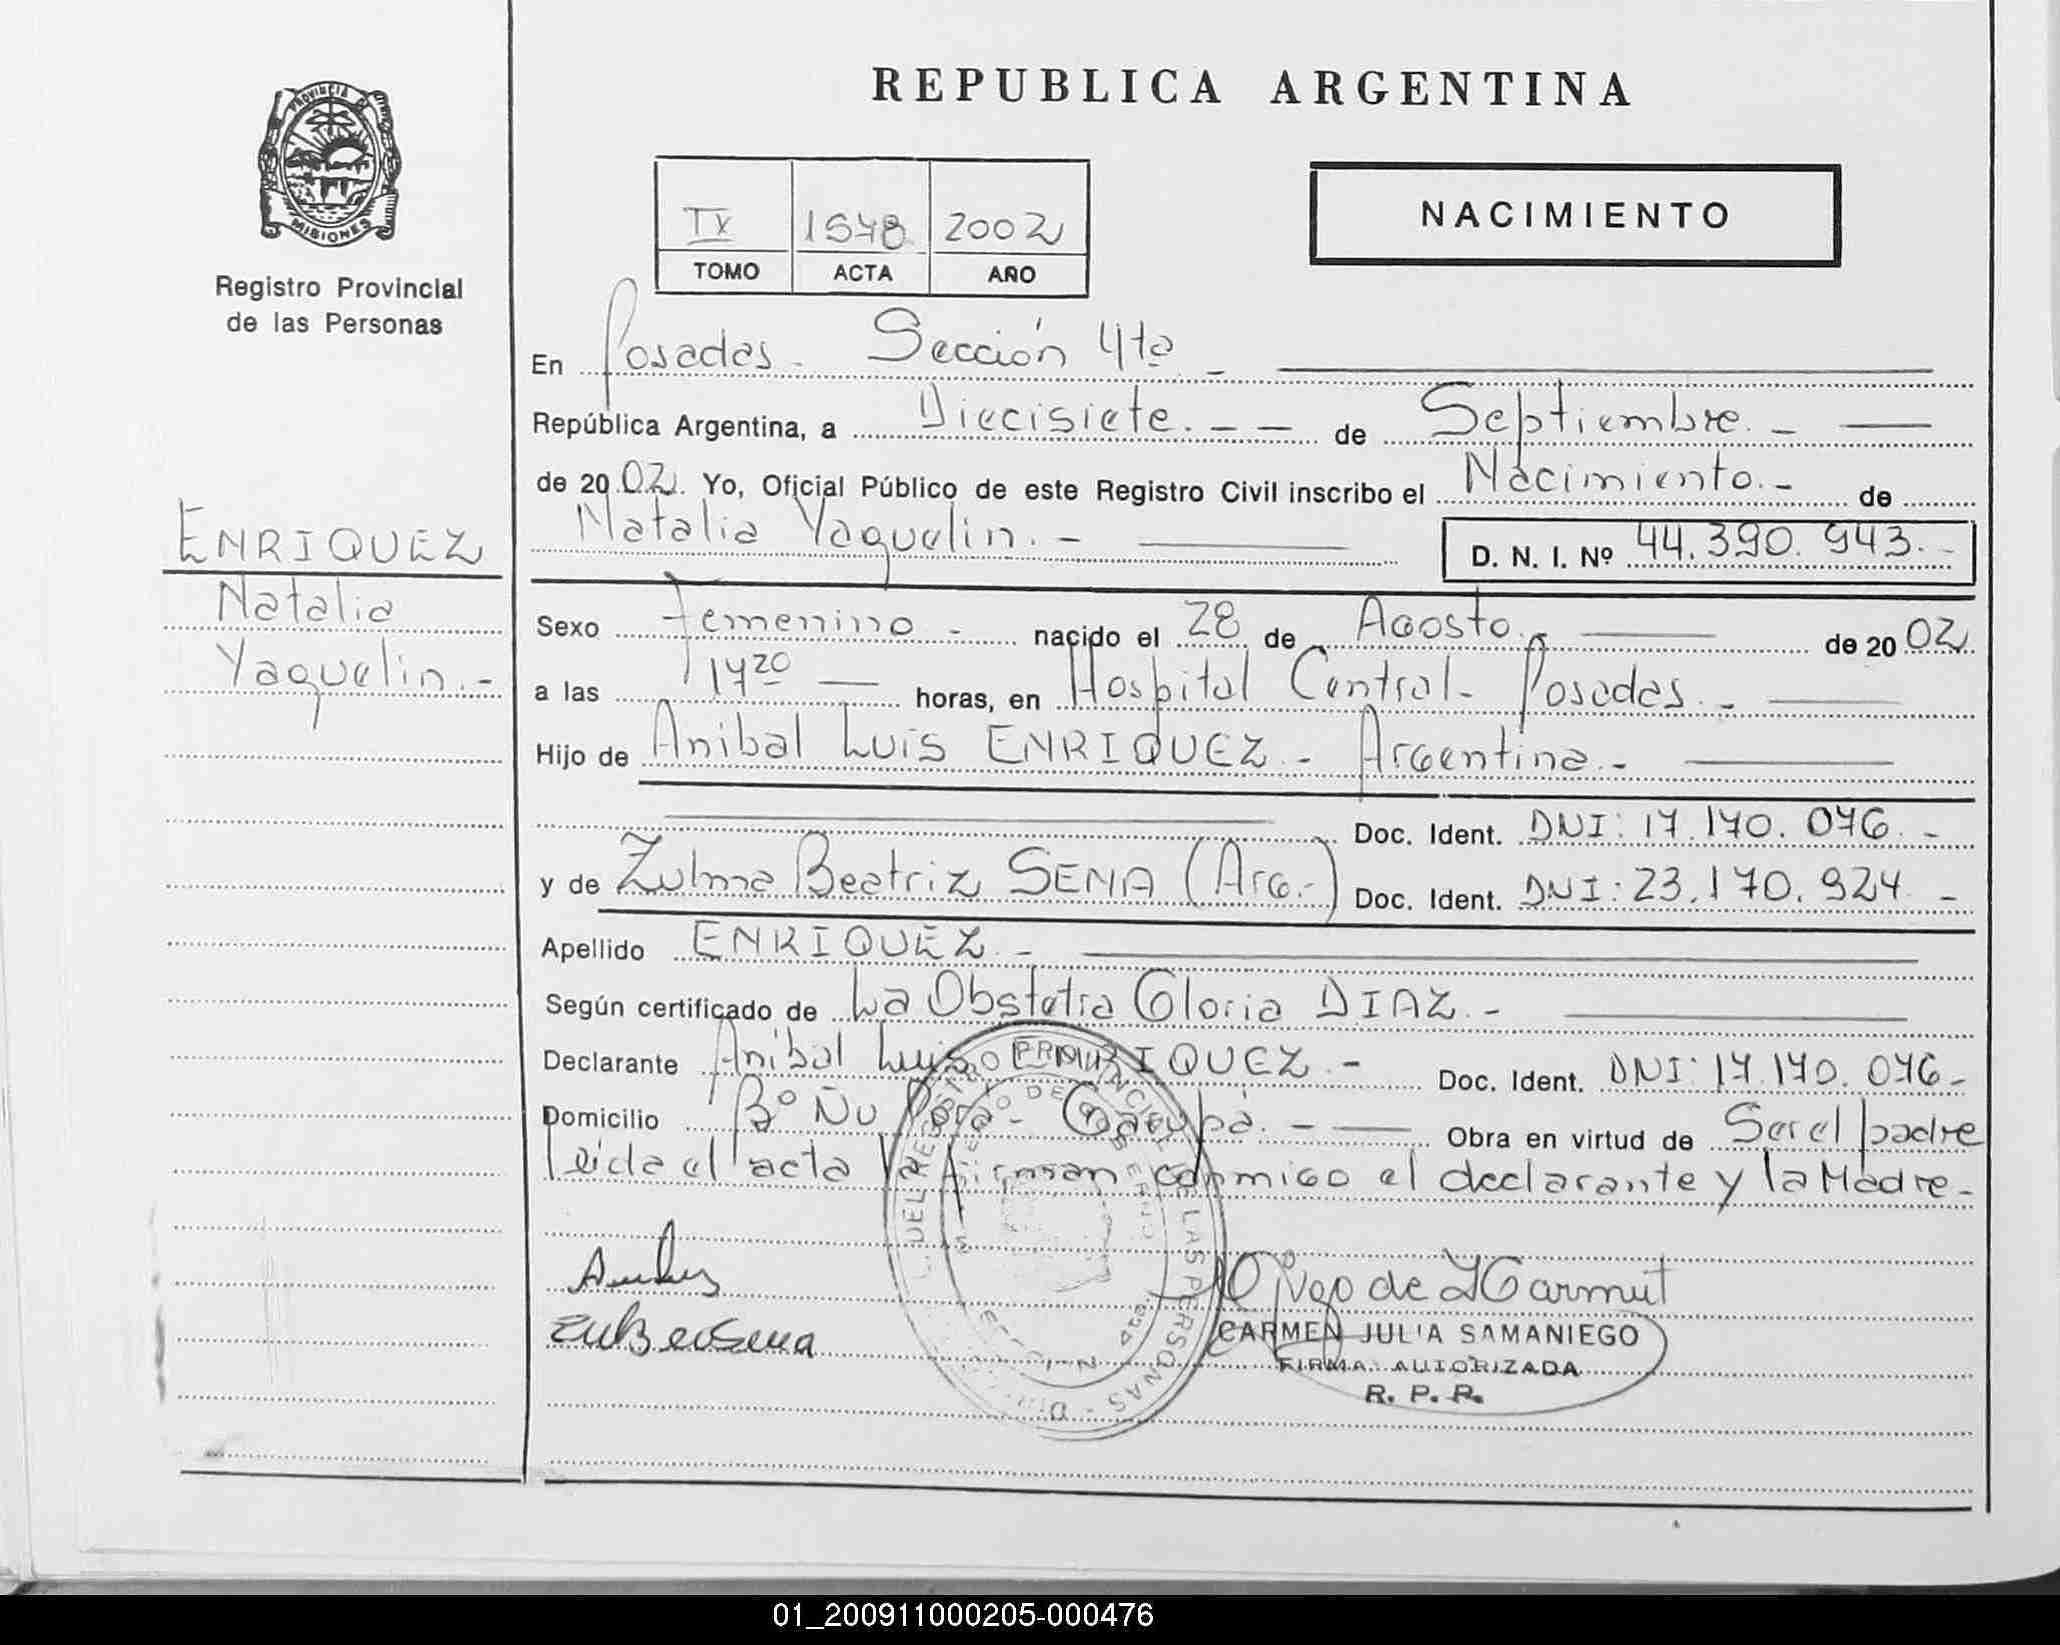 REPUBLICA ARGENTINA
PROVINCIA DE
MISIONES
Registro Provincial
de las Personas
NACIMIENTO
IX 1578 2002
TOMO ACTA AÑO
En Posadas - Sección 4ta -
República Argentina, a Diecisiete. - - de Septiembre. -
de 2002. Yo, Oficial Público de este Registro Civil inscribo el Nacimiento. - de
Natalia Yaquelin. - D. N. I. Nº 44.390.943. -
ENRIQUEZ
Natalia
Yaquelin. -
Sexo Femenino - nacido el 28 de Agosto. - de 2002
a las 17 20 horas, en Hospital Central - Posadas. -
Hijo de Anibal Luis ENRIQUEZ - Argentina. -
Doc. Ident. DNI: 17.170.076. -
y de Zulma Beatriz SENA (Arg.-) Doc. Ident. DNI: 23.170.924 -
Apellido ENRIQUEZ. -
Según certificado de La Obstetra Gloria DIAZ. -
Declarante Anibal Luis ENRIQUEZ - Doc. Ident. DNI: 17.170.076 -
Domicilio Bº Ñu Porá - Garupá. - Obra en virtud de Ser el padre
leida el acta la firman conmigo el declarante y la Madre. -
DEL REGISTRO PROVINCIAL DE LAS PERSONAS
CARMEN JULIA SAMANIEGO
FIRMA AUTORIZADA
R. P. P.
01_200911000205-000476